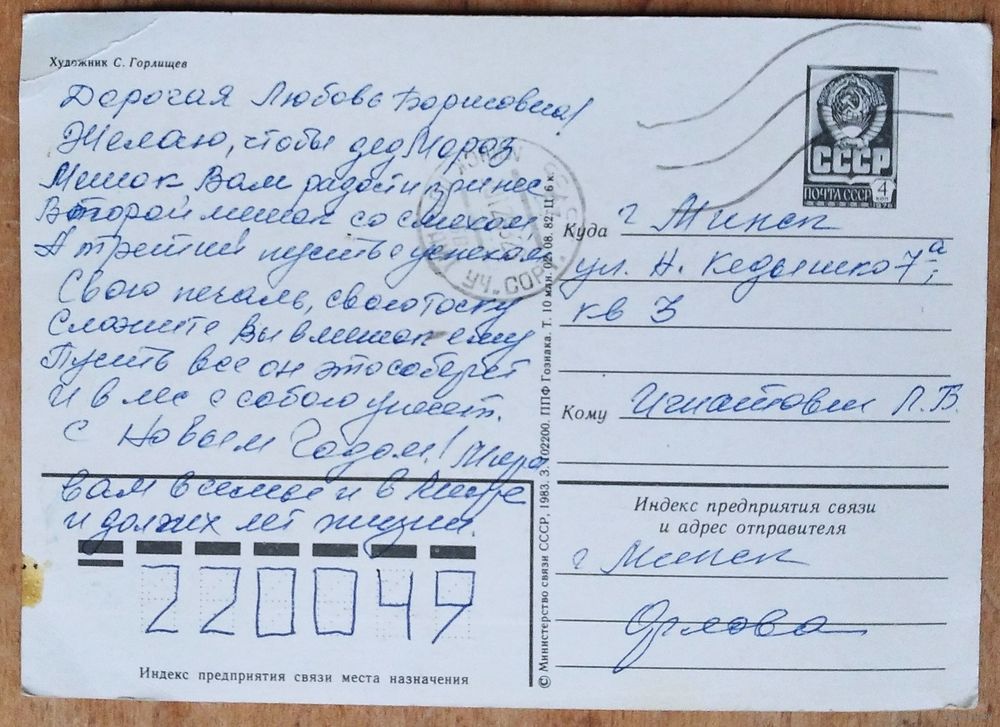 Художник С. Горлищев
Дорогая Любовь Борисовна!
Желаю, чтобы дед Мороз
Мешок Вам радости принес
Второй мешок со смехом,
А третий пусть с успехом
Свою печаль, свою тоску
Сложите Вы в мешок ему
Пусть все он это соберет
И в лес с собою унесет.
С Новым Годом! Мира
вам в семье и в Мире
и долгих лет жизни.
220049
Индекс предприятия связи места назначения
© Министерство связи СССР, 1983. З. 102200. ППФ Гознака. Т. 10 млн. 02. 08. 82. Ц. 6 к.
СССР
ПОЧТА СССР 4 коп
Куда г Минск
ул. Н. Кедышко 7а,
кв 3
Кому Игнатович Л.Б.
Индекс предприятия связи
и адрес отправителя
г Минск
Орлова